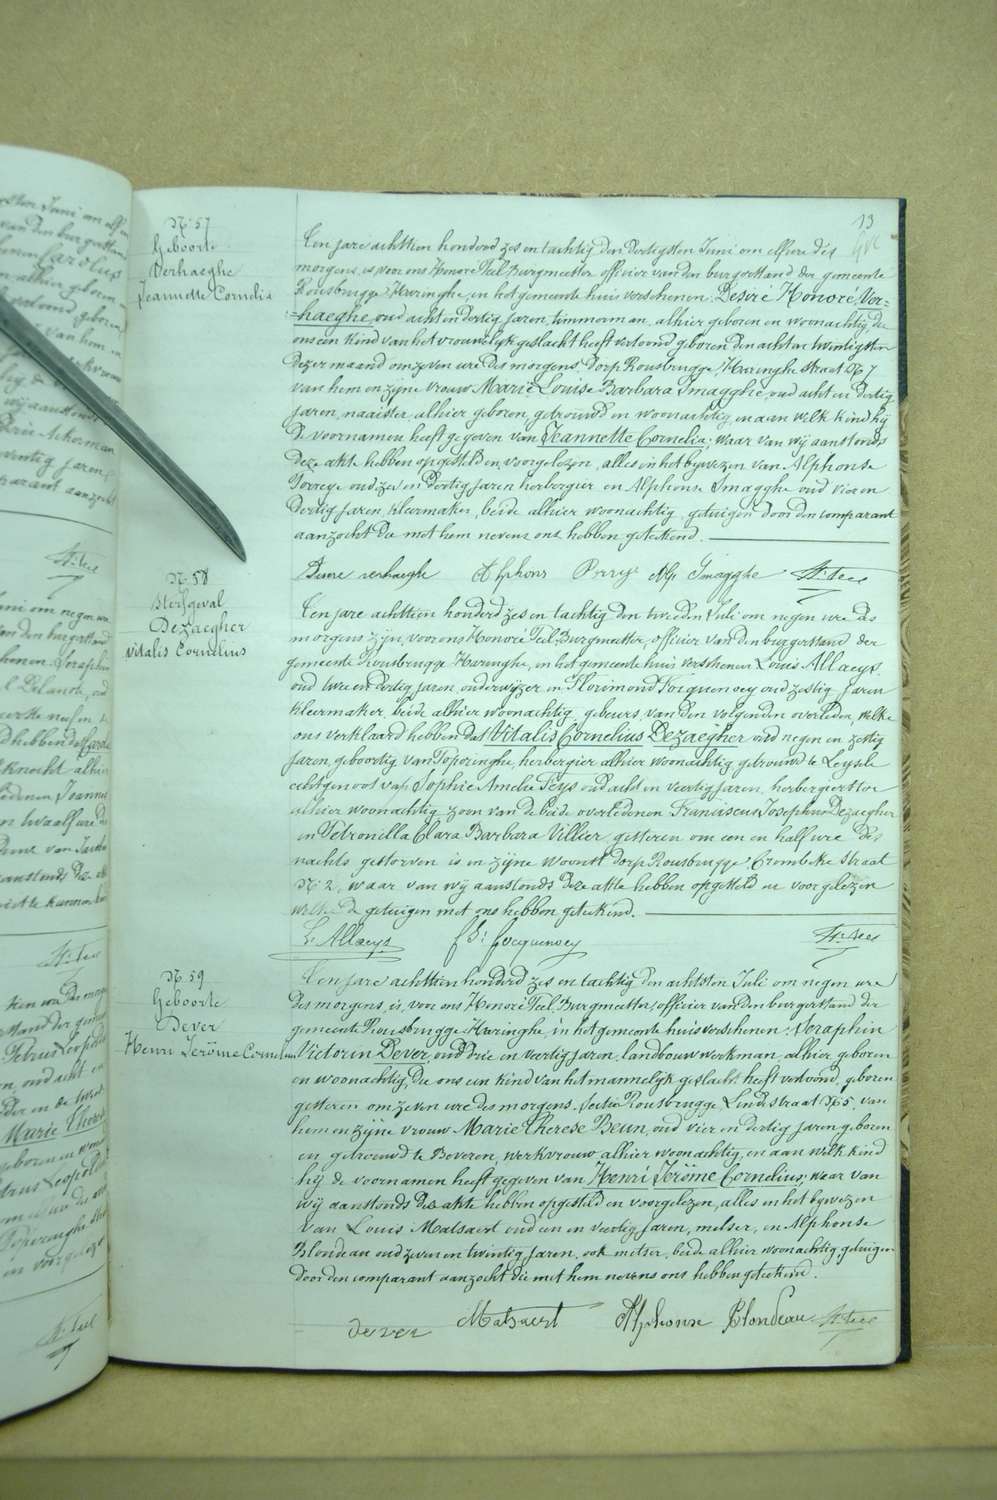 13
N.º 57
Geboorte
Verhaeghe
Jeannette Cornelia
Een jare achttien honderd zes en tachtig den dertigsten Juni om elf ure des
morgens, is voor ons Honoré Teel, Burgmeester, officier van den burgerstand der gemeente
Rousbrugge Haringhe, in het gemeente huis verschenen Desiré Honoré Ver=
=haeghe, oud acht en dertig jaren, timmerman, alhier geboren en woonachtig, die
ons een kind van het vrouwelijk geslacht heeft vertoond, geboren den achsten twintigsten
dezer maand om zeven ure des morgens, Dorp Rousbrugge, Haringhe straat Nº 7
van hem en zijne vrouw Marie Louise Barbara Smagghe, oud acht en dertig
jaren, naaister, alhier geboren, getrouwd en woonachtig, en aan welk kind hij
de voornamen heeft gegeven van Jeannette Cornelia; waar van wij aanstonds
deze akte hebben opgesteld en voorgelezen, alles in het bijwezen van Alphonse
Porreye oud zes en dertig jaren herbergier en Alphonse Smagghe oud vier en
dertig jaren, kleermaker, beide alhier woonachtig, getuigen door den comparant
aanzocht die met hem nevens ons hebben geteekend.
verhaeghe Alphons Alp Smagghe H. Teel
N.º 58
Sterfgeval
Dezaegher
Vitalis Cornelius
Een jare achttien honderd zes en tachtig den tweeden Juli om negen ure des
morgens zijn, voor ons Honoré Teel, Burgmeester, officier van den burgerstand der
gemeente Rousbrugge Haringhe, in het gemeente huis verschenen Louis Allaeys
oud twee en dertig jaren, onderwijzer en Florimond Focquenoey oud zestig jaren
kleermaker, beide alhier woonachtig, geburs, van den volgenden overleden, welke
ons verklaard hebben dat Vitalis Cornelius Dezaegher oud negen en zestig
jaren, geboortig van Poperinghe, herbergier alhier woonachtig getrouwd te Leysele
echtgenoot van Sophie Amelie Feys oud acht en veertig jaren, herbergierster
alhier woonachtig zoon van de beide overledenen Franciscus Josephus Dezaegher
en Petronella Clara Barbara Villier, gisteren om een en half ure des
nachts gestorven is in zijne woonst dorp Rousbrugge, Crombeke straat
Nº 2, waar van wij aanstonds deze akte hebben opgesteld en voorgelezen
welke de getuigen met ons hebben geteekend.
L. Allaeys fs: focquenoey H. Teel
N. 59
Geboorte
Dever
Henri Jerôme Cornelius
Een jare achttien honderd zes en tachtig den achtsten Juli om negen ure
des morgens, is, voor ons Honoré Teel, Burgmeester, officier van den burgerstand der
gemeente Rousbrugge Haringhe, in het gemeente huis verschenen: Seraphin
Victorin Dever, oud drie en veertig jaren, landbouwwerkman, alhier geboren
en woonachtig, die ons een kind van het mannelijk geslacht heeft vertoond, geboren
gisteren om zeven ure des morgens, sectie Rousbrugge, Linde straat Nº 5, van
hem en zijne vrouw Marie Therese Beun, oud vier en dertig jaren geboren
en getrouwd te Beveren, werkvrouw, alhier woonachtig, en aan welk kind
hij de voornamen heeft gegeven van Henri Jerôme Cornelius; waar van
wij aanstonds deze akte hebben opgesteld en voorgelezen, alles in het bijwezen
van Louis Matsaert oud een en veertig jaren, metser, en Alphonse
Blondeau oud zeven en twintig jaren, ook metser, beide alhier woonachtig, getuigen
door den comparant aanzocht die met hem nevens ons hebben geteekend.
dever Matsaert Alphonse Blondeau H. Teel